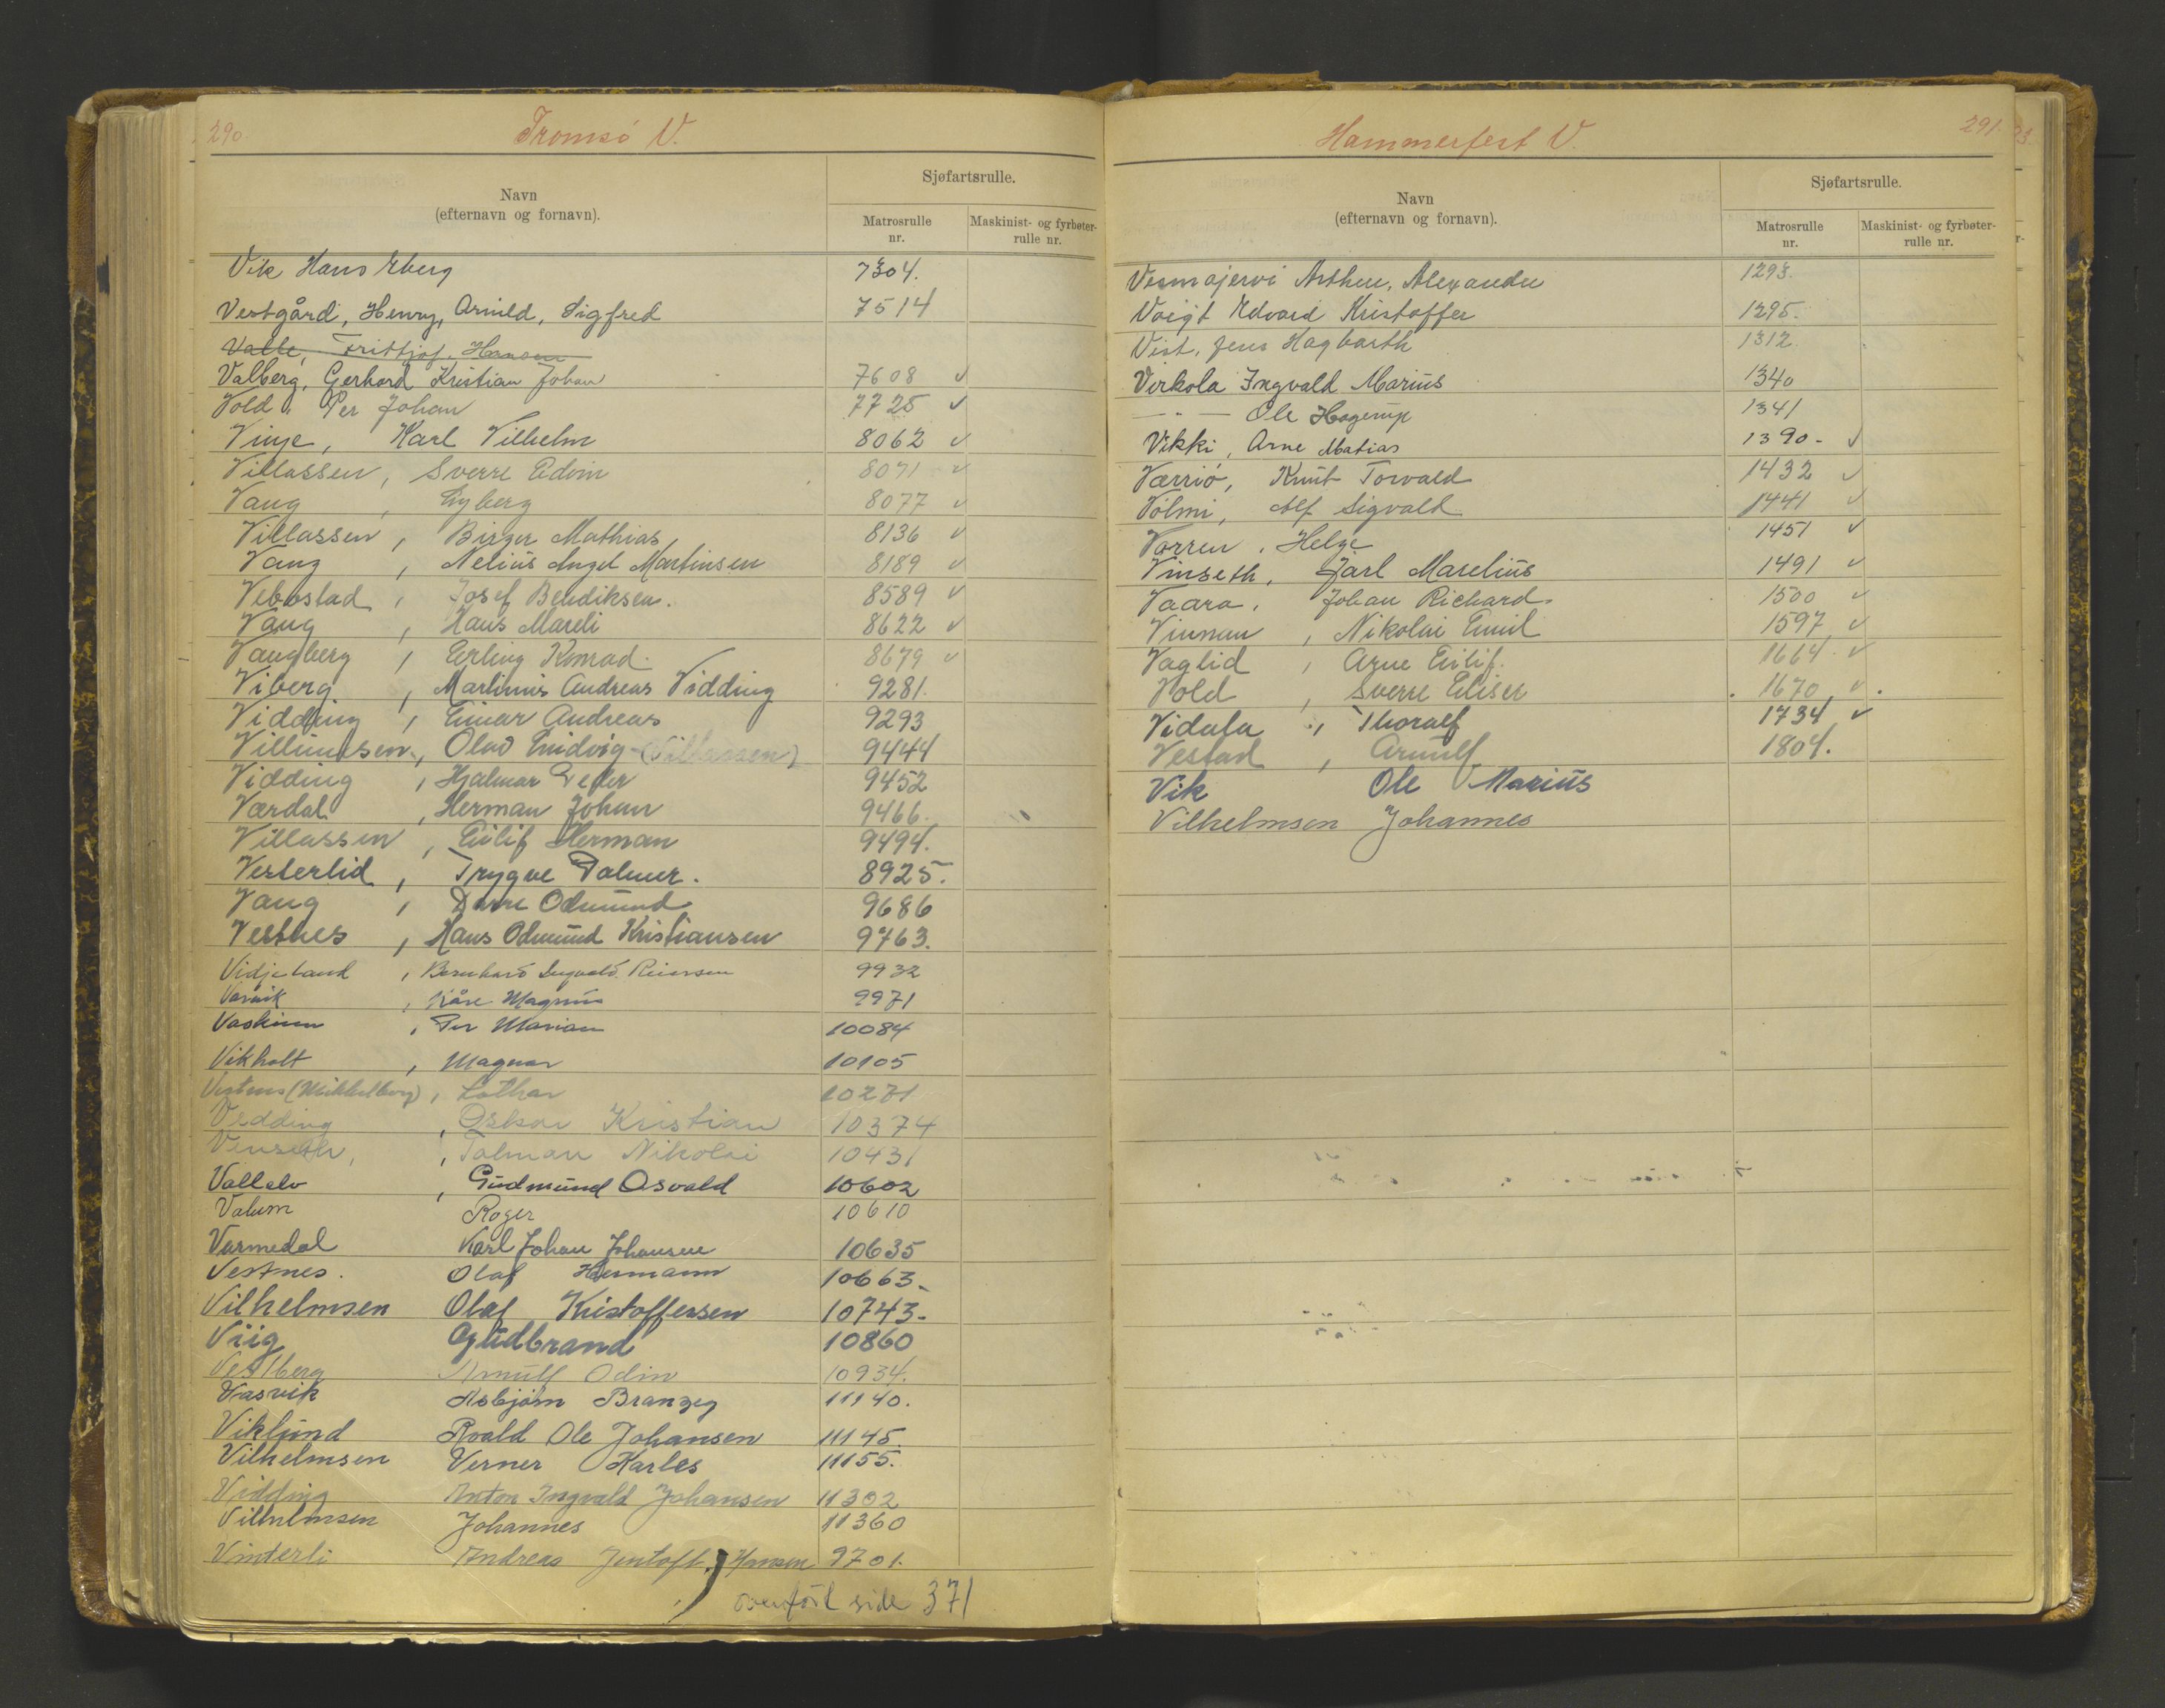 290
Tromsø V.
Navn
(efternavn og fornavn).
Sjøfartsrulle.
Matrosrulle nr.
Maskinist- og fyrbøter- rulle nr.
Vik Hans Eberg 7304.
Vestgård, Henry, Arnild, Sigfred 7514
Valle, Frittjof. Hanssen
Valberg, Gerhard Kristian Johan 7608 v
Vold, Per Johan 7725 v
Vinje, Karl Vilhelm 8062 v
Villassen, Sverre Edvin 8071 v
Vang, Eyberg 8077 v
Villassen, Birger Mathias 8136 v
Vang, Nelius Angel Martinsen 8189 v
Vebostad, Josef Bendiksen. 8589 v
Vang, Hans Mareli 8622 v
Vangberg, Erling Konrad. 8679 v
Viberg, Martinus Andreas Vidding 9281.
Vidding, Einar Andreas 9293
Villumsen, Olav Ludvig (Villassen) 9444
Vidding, Hjalmar Peder 9452
Værdal, Herman Johan 9466.
Villassen, Eilif Herman 9494.
Vesterlid, Trygve Palmer. 8925.
Vang, Odmund 9686
Vestnes, Hans Odmund Kristiansen 9763.
Vidjeland, Bernhard Ingvald Reiersen 9932
Varvik, Kåre Magnus 9971
Vaskinn, Per Marian 10084
Vikholt, Magnar 10105
Vestens (Mikkelborg), Lothar 10271
Vedding, Oskar Kristian 10374
Venseth, Talman Nikolai 10431
Vallelv, Gudmund Osvald 10602
Valum Roger 10610
Varmedal Karl Johan Johansen 10635
Vestnes. Olaf Hermann 10663-
Vilhelmsen Olaf Kristoffersen 10743-
Viig Gudbrand 10860
Vestberg Arnulf Odin 10934.
Vasvik Asbjørn Branzeg 11140.
Viklund Roald Ole Johansen 11145.
Vilhelmsen Verner Karles 11155.
Vidding Anton Ingvald Johansen 11302
Vilhelmsen Johannes 11360
Vinterli Andreas Jentoft. Hansen 9701.
overført side 371
291.
Hammerfest V.
Navn
(efternavn og fornavn).
Sjøfartsrulle.
Matrosrulle nr.
Maskinist- og fyrbøter- rulle nr.
Vesmajervi Arthur, Alexander 1293.
Voigt Edvard Kristoffer 1295.
Vist, Jens Hagbarth 1312.
Virkola Ingvald Marius 1340
— " — Ole Hagerup 1341
Vikki, Arne Matias 1390- v
Værriø, Knut Torvald 1432 v
Volmi, Alf Sigvald 1441 v
Vorren, Helge 1451 v
Vinseth, Jarl Marelius 1491 v
Vaara, Johan Richard. 1500 v
Vinman, Nikolai Emil 1597 v
Vaglid, Arne Eilif. 1664. v
Vold, Sverre Eliser 1670 v.
Vidala, Thoralf 1734 v
Vestad, Arnulf 1804.
Vik Ole Marius
Vilhelmsen Johannes